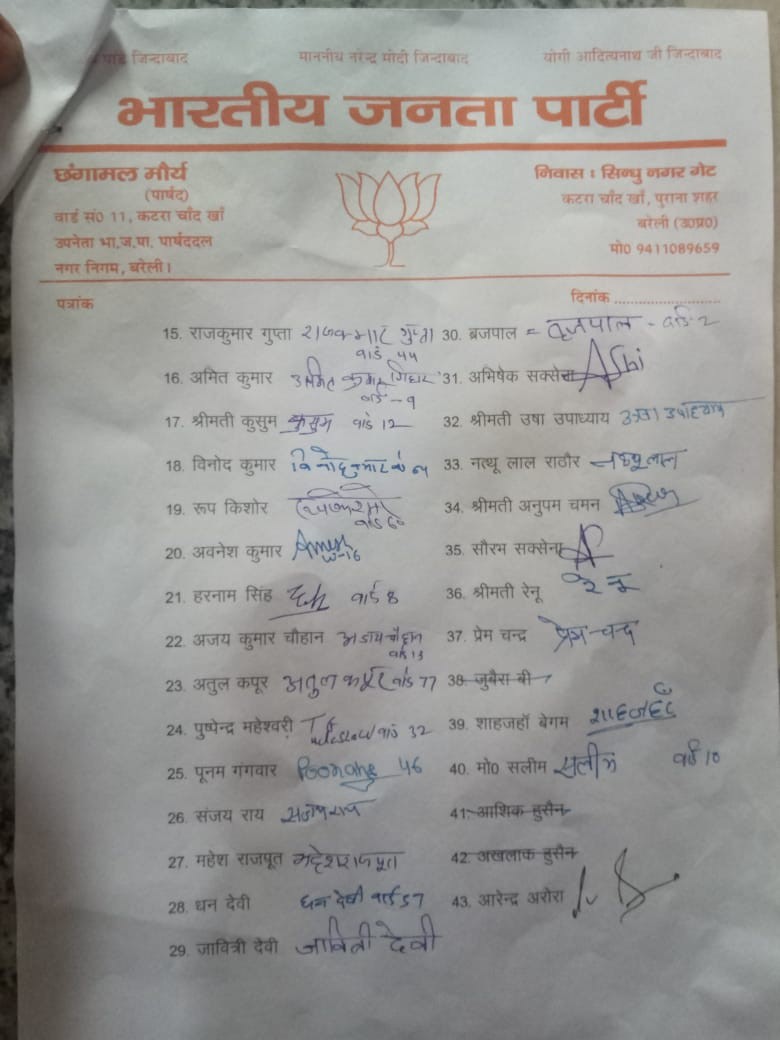 जिन्दाबाद माननीय नरेन्द्र मोदी जिन्दाबाद योगी आदित्यनाथ जी जिन्दाबाद
भारतीय जनता पार्टी
छंगामल मौर्य
(पार्षद)
वार्ड सं0 11, कटरा चाँद खाँ
उपनेता भा.ज.पा. पार्षददल
नगर निगम, बरेली।
निवास : सिन्धु नगर गेट
कटरा चाँद खाँ, पुराना शहर
बरेली (उ0प्र0)
मो0 9411089659
पत्रांक
दिनांक ........................
15. राजकुमार गुप्ता राजकुमार गुप्ता
वार्ड 44
16. अमित कुमार अमित कुमार
वार्ड - 9
17. श्रीमती कुसुम कुसुम वार्ड 12
18. विनोद कुमार
19. रूप किशोर
वार्ड 60
20. अवनेश कुमार
W-16
21. हरनाम सिंह वार्ड 8
22. अजय कुमार चौहान अजय चौहान
वार्ड 13
23. अतुल कपूर अतुल कपूर वार्ड 77
24. पुष्पेन्द्र महेश्वरी वार्ड 32
25. पूनम गंगवार Poonam 46
26. संजय राय संजय राय
27. महेश राजपूत महेश राजपूत
28. धन देवी धन देवी वार्ड 57
29. जावित्री देवी जावित्री देवी
30. ब्रजपाल = वृजपाल - वार्ड-2
31. अभिषेक सक्सेना
32. श्रीमती उषा उपाध्याय उषा उपाध्याय
33. नत्थू लाल राठौर नत्थूलाल
34. श्रीमती अनुपम चमन
35. सौरभ सक्सेना
36. श्रीमती रेनू रेनू
37. प्रेम चन्द्र प्रेम चन्द्र
38. जुबैरा बी
39. शाहजहाँ बेगम शाहजहाँ
40. मो0 सलीम सलीम वार्ड 10
41. आशिक हुसैन
42. अखलाक हुसैन
43. आरेन्द्र अरोरा